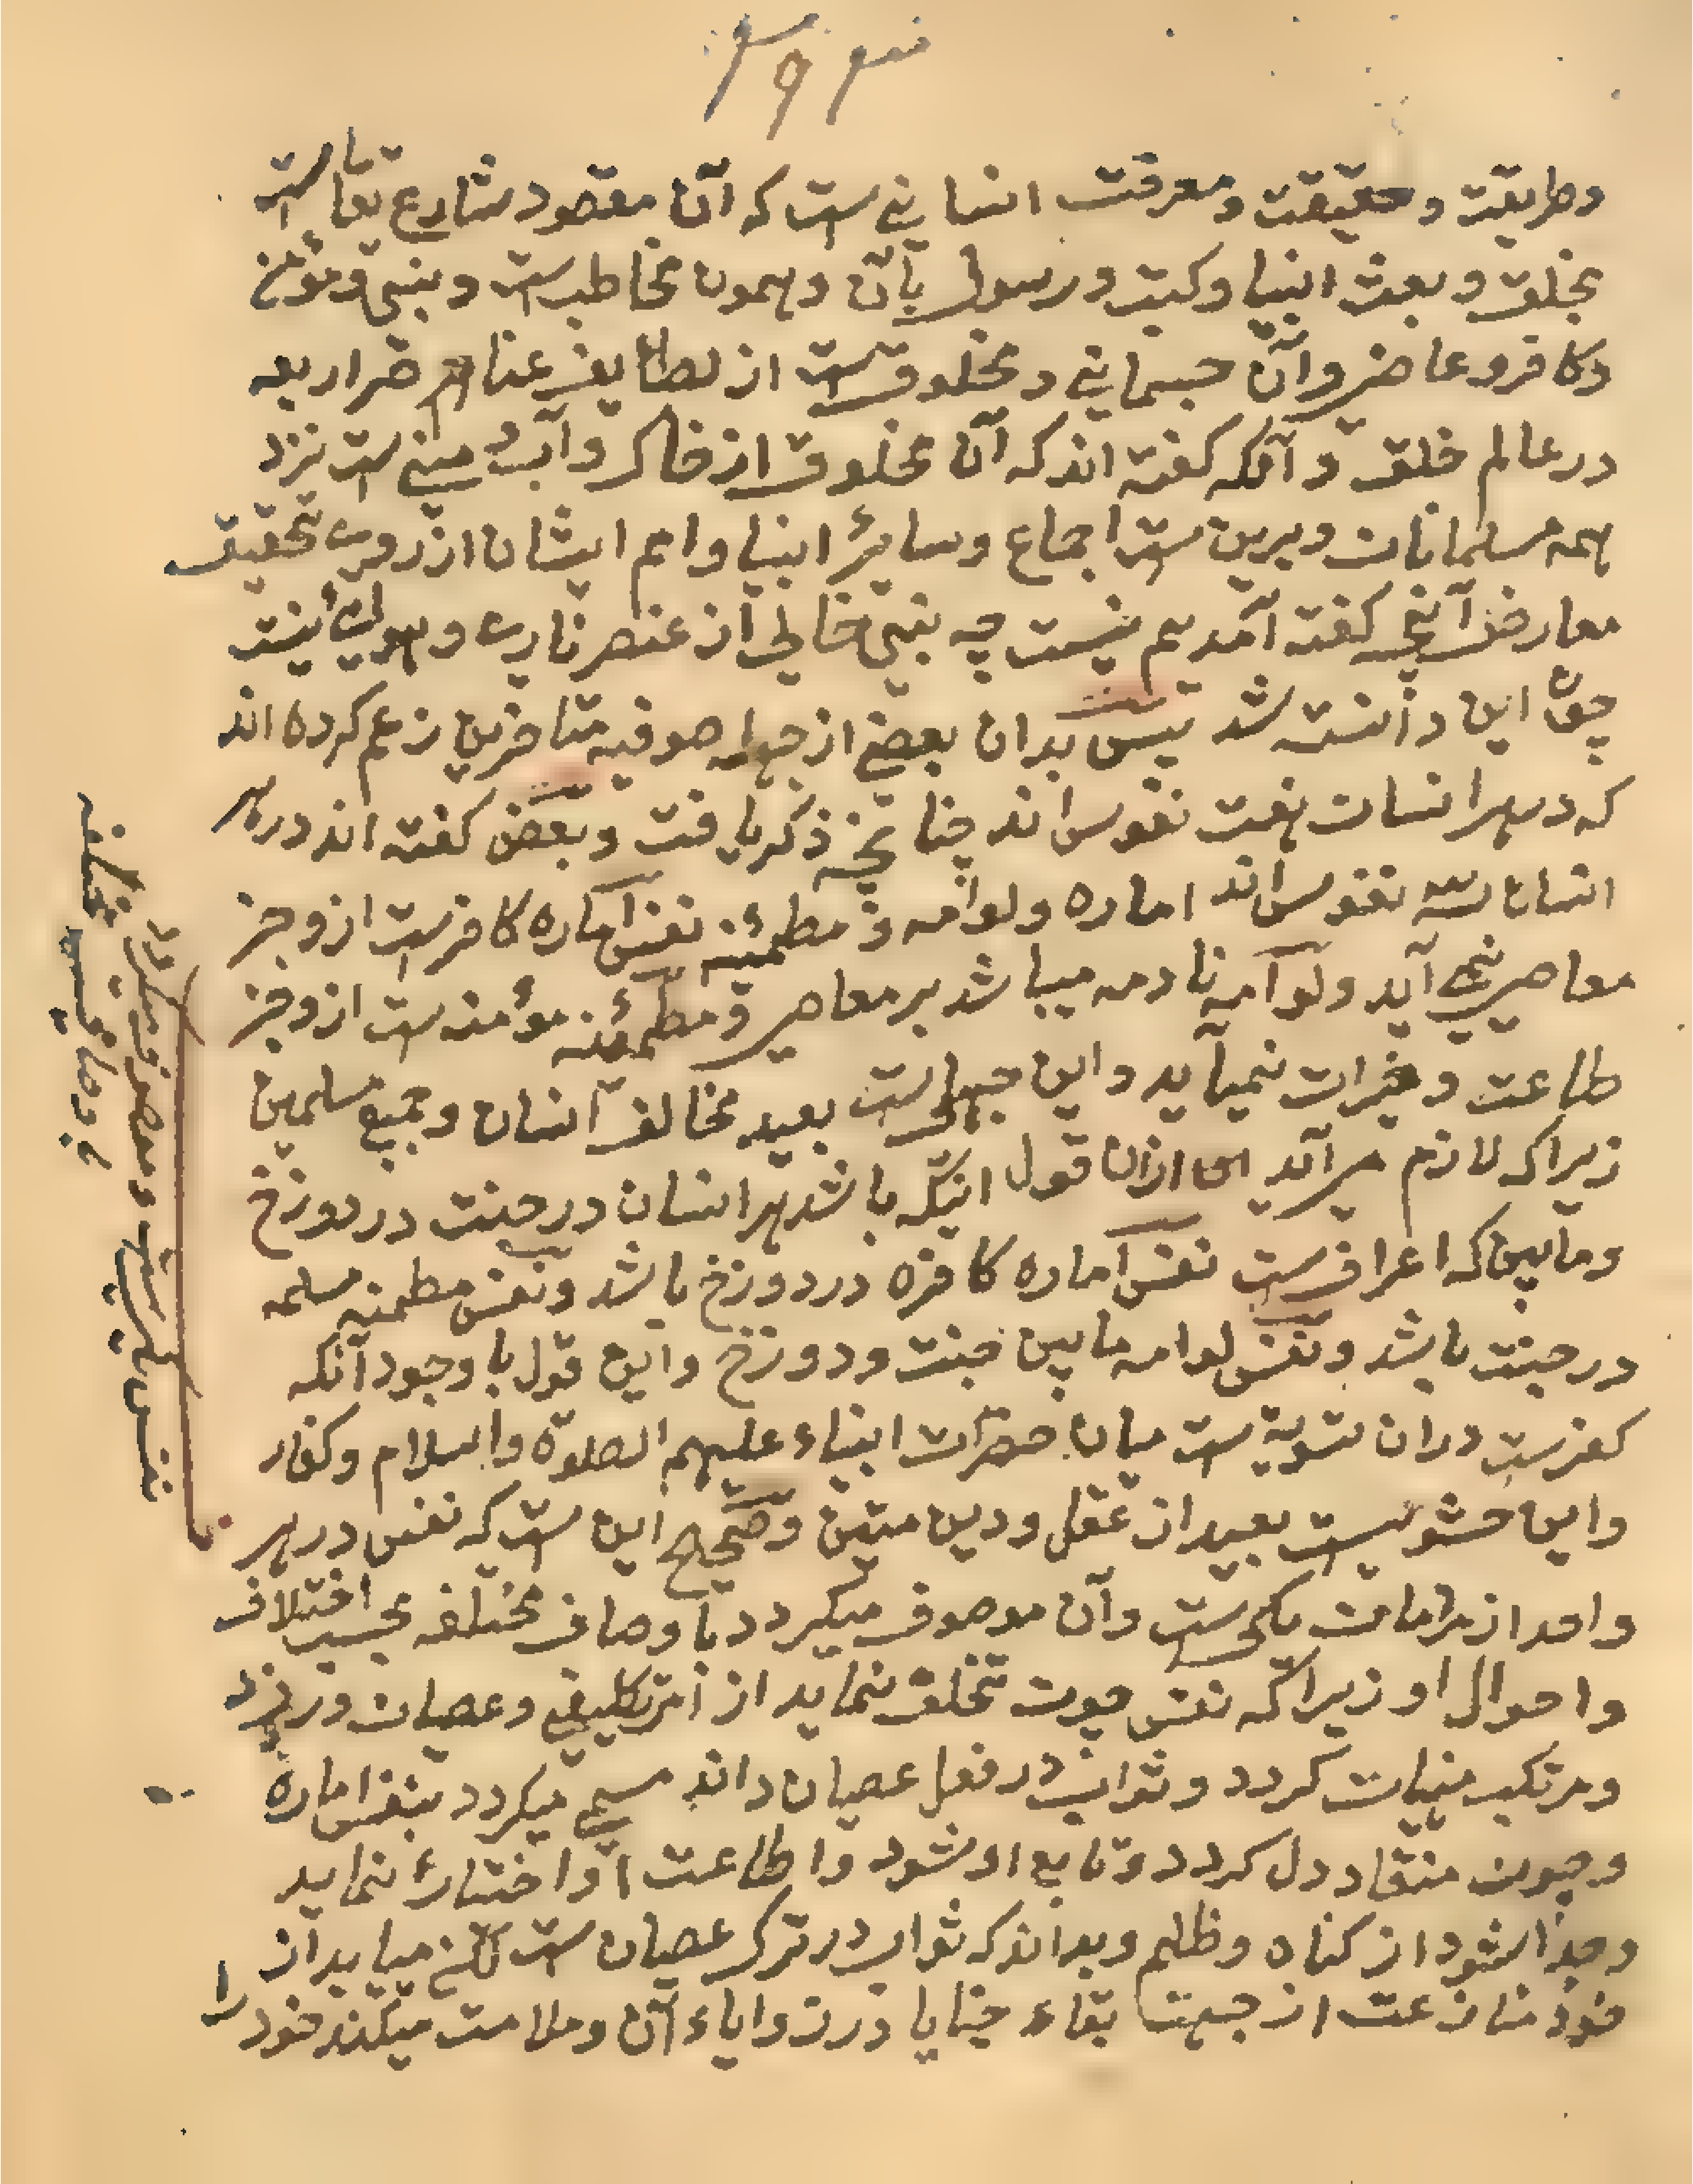 وطریقت وحقیقت ومعرفت انسانی ست که آن مقصود شارع تعالی ست
بخلق وبعث انبیا وکتب ورسول بآن وهمون مخاطب ست ونبی ومؤمن
وکافر وعاصی وآن جسمانی ومخلوق ست از لطایف عناصر اربعه
در عالم خلق وآنکه کفته اند که آن مخلوق از خاک وآب مبنی ست نزد
همه مسلمانان وبرین ست اجماع وسایر انبیا وامم ایشان از روی تحقیق
معارض آنچه کفته آمدیم نیست چه بنی خالی از عنصر ناری وهوائی نیست
چون این دانسته شد پس بدان بعضی از جهله صوفیه متاخرین زعم کرده اند
که در هر انسان هفت نفوس اند چنانچه ذکر یافت وبعض کفته اند در هر
انسان سه نفوس اند اماره ولوامه ومطمئنه نفس اماره کافر ست از وجز
معاصی نمی آید ولوامه نادمه میباشد بر معاصی ومطمئنه مؤمنه ست از وجز
طاعت وخیرات نمیآید واین جهل ست بعید مخالف انسان وجمیع مسلمین
زیرا که لازم می آید ازان قول اینکه باشد هر انسان در جنت در دوزخ
ومابین که اعراف ست نفس اماره کافره در دوزخ باشد ونفس مطمنیه مسلمه
در جنت باشد ونفس لوامه مابین جنت ودوزخ واین قول با وجود آنکه
کفرست دران تسویه ست میان حضرات انبیاء علیهم الصلوة والسلام وکفار
واین حشویست بعید از عقل ودین متین وصحیح این ست که نفس در هر
واحد از مقامات یکی ست وآن موصوف میکردد باوصاف مختلفه بحسب اختلاف
واحوال او زیرا که نفس چون تخلق نماید از امر تکلیفی وعصیان ورزد
ومرتکب منهیات کردد وثواب در فعل عصیان داند مسمی میکردد بنفس اماره
وچون منقاد دل کردد وتابع او شود واطاعت او اختیار نماید
وجدا شود از کناه وظلم وبداند که ثواب در ترک عصیان ست لکن میاید از
خود منازعت از جهت بقاء خبایا در زوایاء آن وملامت میکند خود را
نفس یکی ست وموصوف میکردد
باوصاف مختلفه